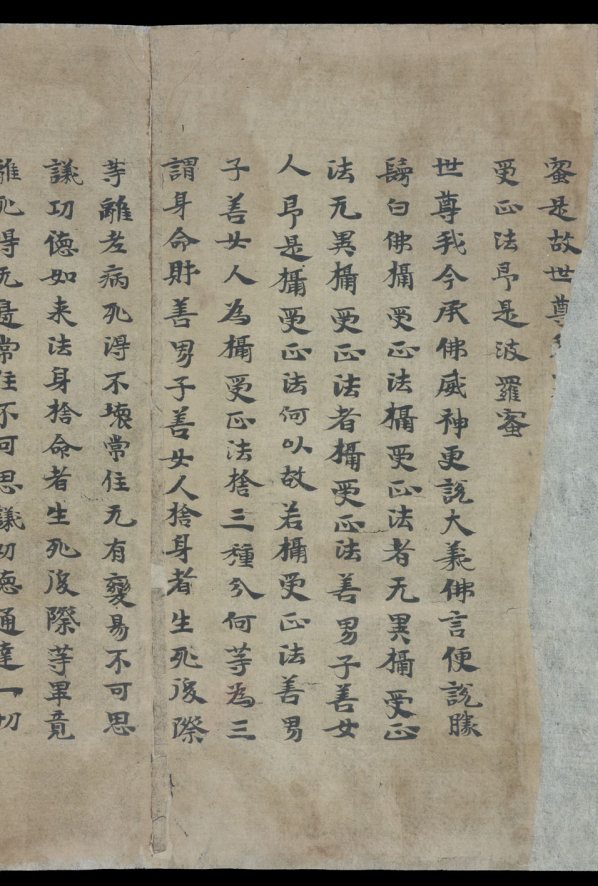 蜜是故世尊
受正法即是波羅蜜
世尊我今承佛威神更說大義佛言便說勝
鬘白佛攝受正法攝受正法者无異攝受正
法无異攝受正法者攝受正法善男子善女
人即是攝受正法何以故若攝受正法善男
子善女人為攝受正法捨三種分何等為三
謂身命財善男子善女人捨身者生死後際
等離老病死得不壞常住无有變易不可思
議功德如来法身捨命者生死後際等畢竟
離死得无邊常住不可思議功德通達一切